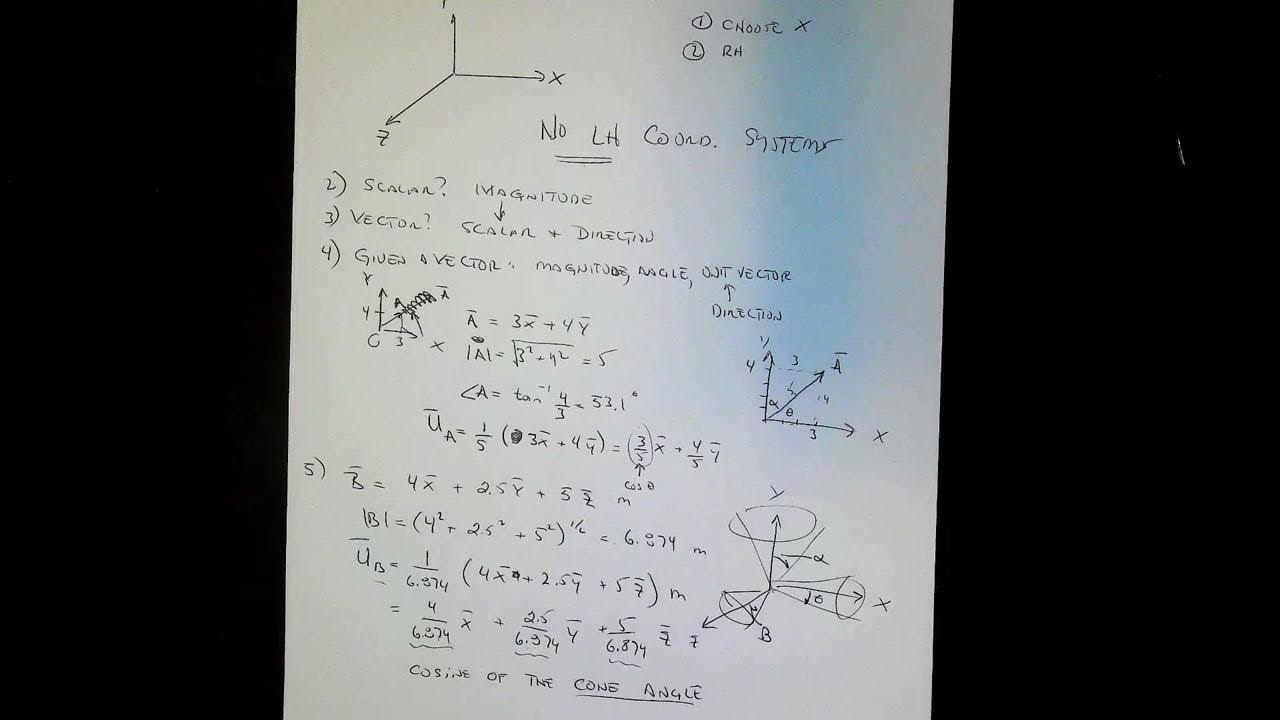 ① CHOOSE X
② RH
X
Z
NO LH COORD. SYSTEMS
2) SCALAR? MAGNITUDE
3) VECTOR? SCALAR + DIRECTION
4) GIVEN A VECTOR: MAGNITUDE, ANGLE, UNIT VECTOR
DIRECTION
Y
4
A Ā
3 X
Ā = 3x̄ + 4ȳ
|A| = √3² + 4² = 5
∠A = tan⁻¹ 4/3 = 53.1°
Ū_A = 1/5 (3x̄ + 4ȳ) = (3/5) x̄ + 4/5 ȳ
cos θ
Y
4 3 Ā
5 4
α θ
3 X
5) B̄ = 4x̄ + 2.5ȳ + 5z̄ m
|B| = (4² + 2.5² + 5²)^1/2 = 6.874 m
Ū_B = 1/6.874 (4x̄ + 2.5ȳ + 5z̄) m
= 4/6.874 x̄ + 2.5/6.874 ȳ + 5/6.874 z̄
Y
α
θ X
B
z
COSINE OF THE CONE ANGLE